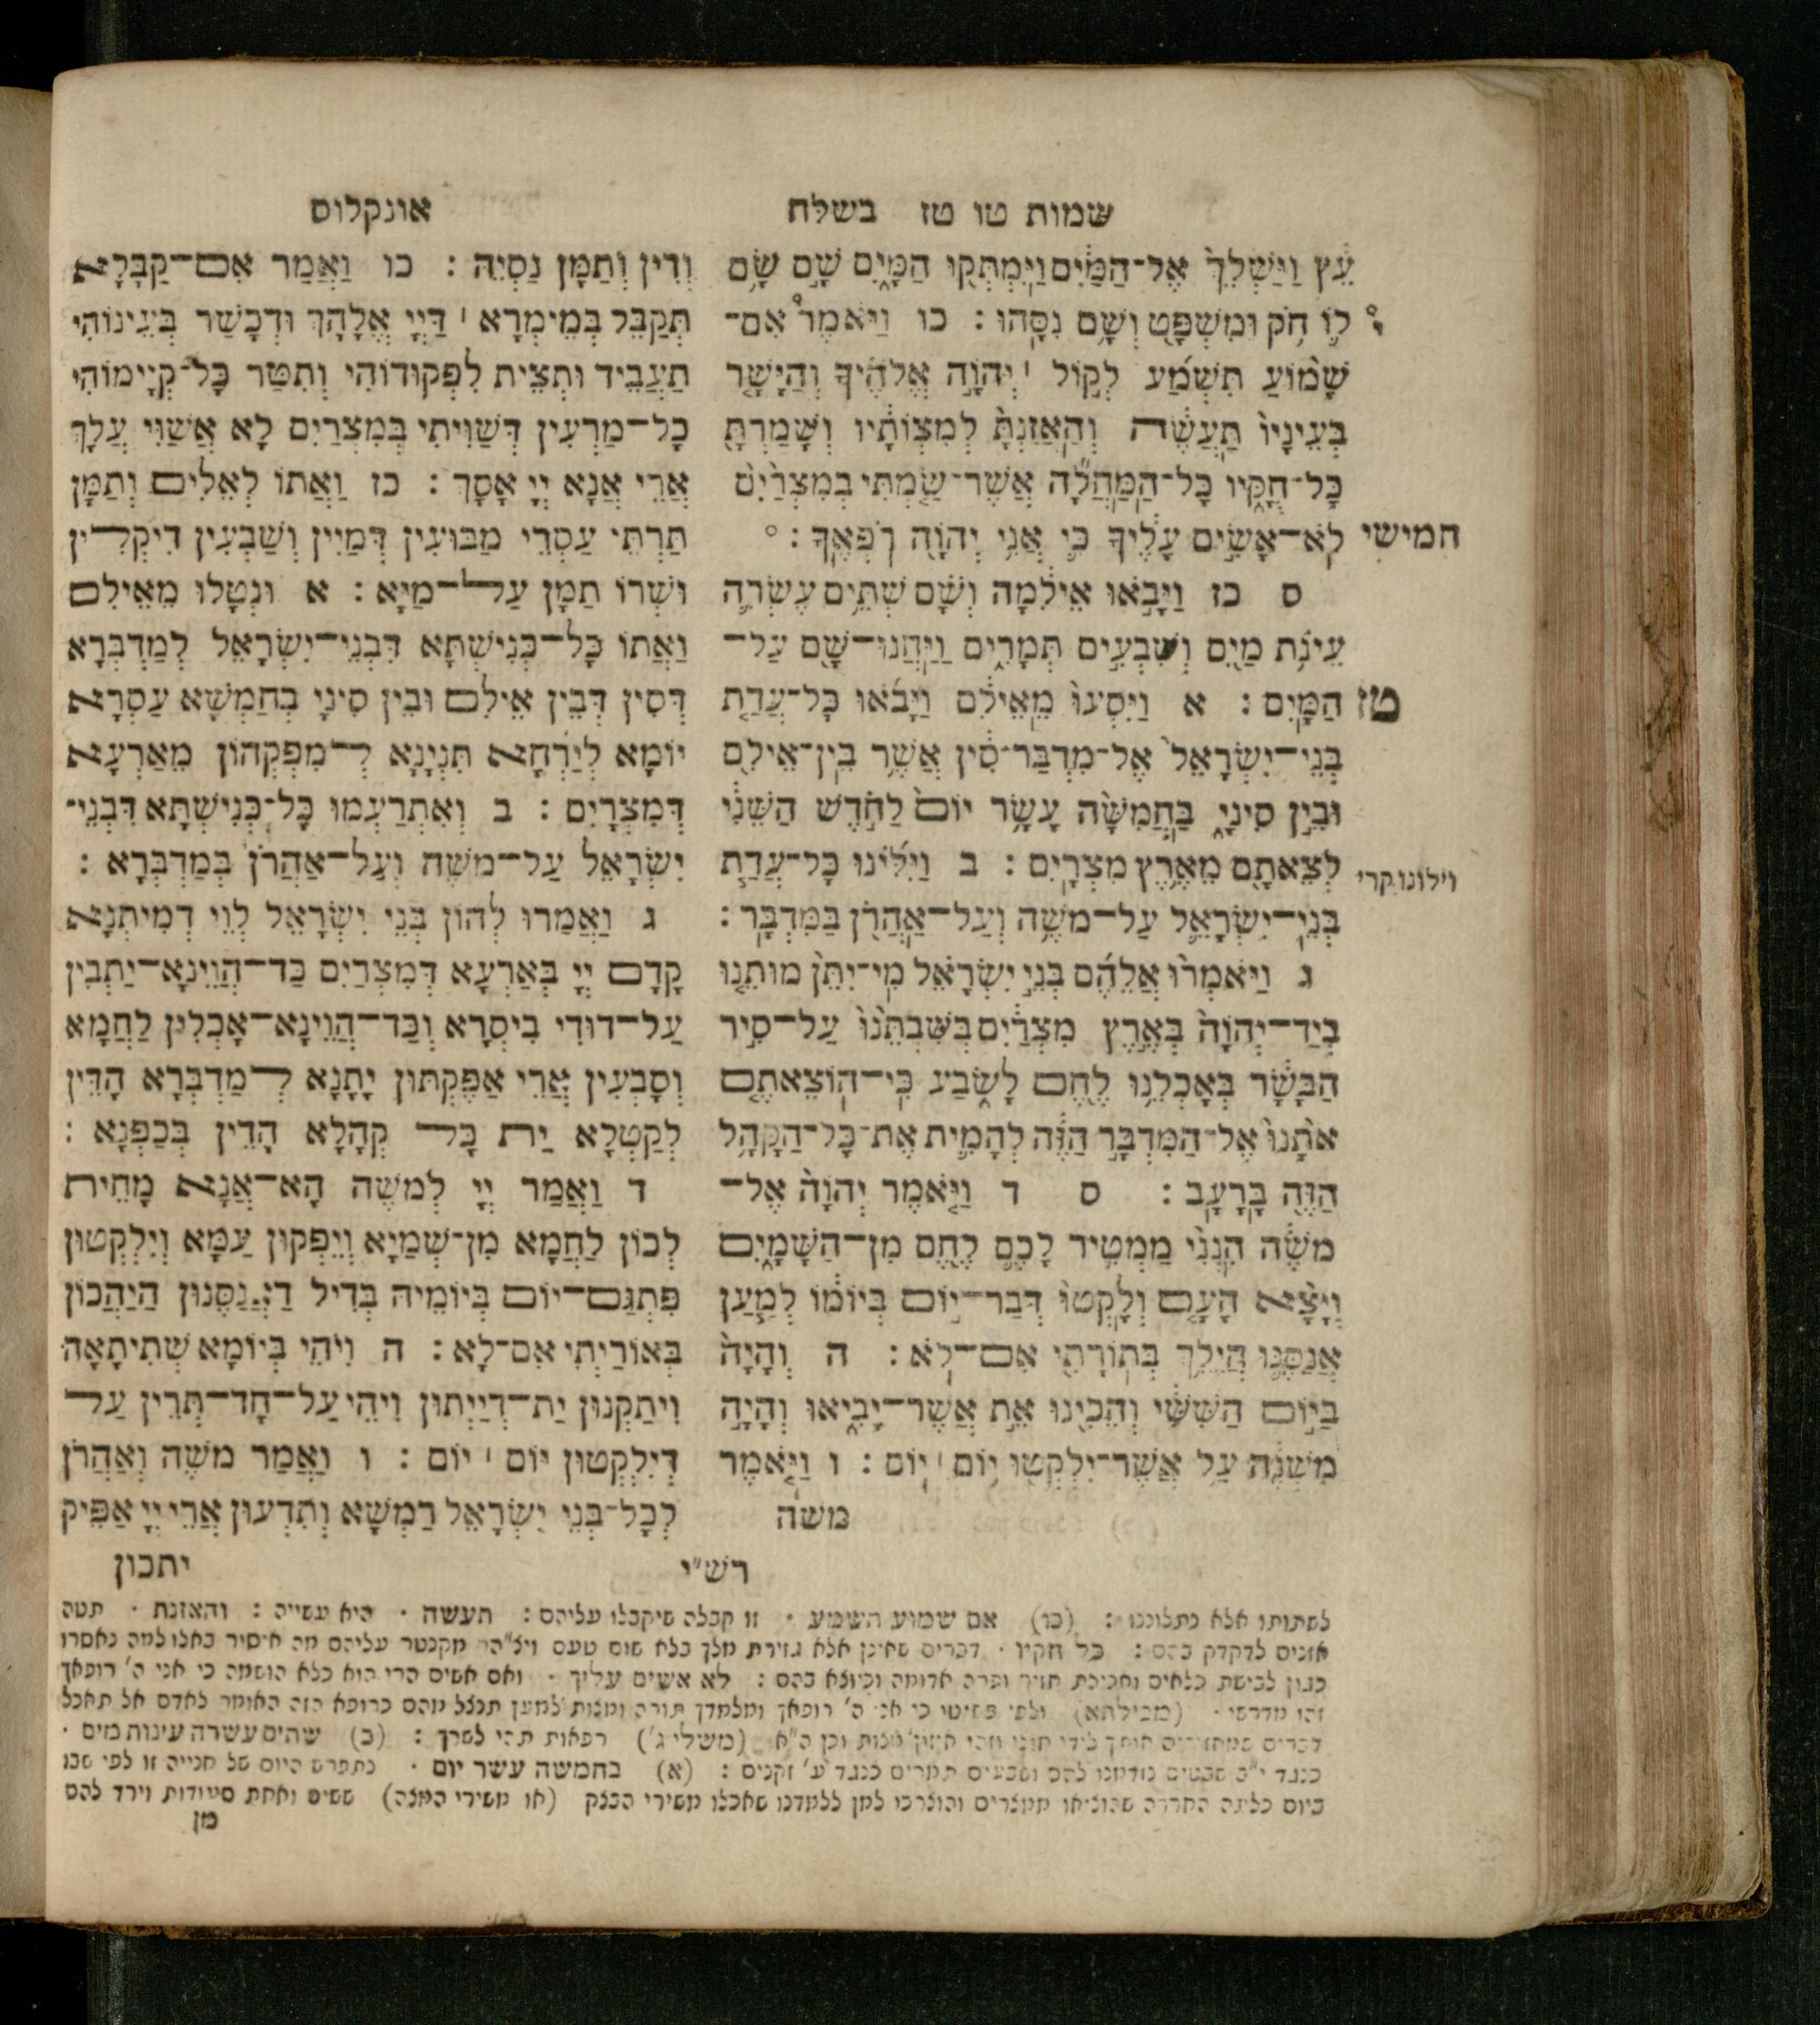 שמות טו טז בשלח
עֵ֔ץ וַיַּשְׁלֵךְ֙ אֶל־הַמַּ֔יִם וַֽיִּמְתְּק֖וּ הַמָּ֑יִם שָׁ֣ם שָׂ֥ם
ל֛וֹ חֹ֥ק וּמִשְׁפָּ֖ט וְשָׁ֥ם נִסָּֽהוּ : כו וַיֹּאמֶר֩ אִם־
שָׁמ֨וֹעַ תִּשְׁמַ֜ע לְק֣וֹל ׀ יְהוָ֣ה אֱלֹהֶ֗יךָ וְהַיָּשָׁ֤ר
בְּעֵינָיו֙ תַּֽעֲשֶׂ֔ה וְהַֽאֲזַנְתָּ֙ לְמִצְוֺתָ֔יו וְשָׁמַרְתָּ֖
כָּל־חֻקָּ֑יו כָּל־הַֽמַּחֲלָ֞ה אֲשֶׁר־שַׂ֤מְתִּי בְמִצְרַ֙יִם֙
חמישי לֹא־אָשִׂ֣ים עָלֶ֔יךָ כִּ֛י אֲנִ֥י יְהוָ֖ה רֹפְאֶֽךָ :
ס כז וַיָּבֹ֣אוּ אֵילִ֔מָה וְשָׁ֗ם שְׁתֵּ֥ים עֶשְׂרֵ֛ה
עֵינֹ֥ת מַ֖יִם וְשִׁבְעִ֣ים תְּמָרִ֑ים וַיַּֽחֲנוּ־שָׁ֖ם עַל־
טז הַמָּֽיִם : א וַיִּסְעוּ֙ מֵֽאֵילִ֔ם וַיָּבֹ֜אוּ כָּל־עֲדַ֤ת
בְּנֵֽי־יִשְׂרָאֵל֙ אֶל־מִדְבַּר־סִ֔ין אֲשֶׁ֥ר בֵּין־אֵילִ֖ם
וּבֵ֣ין סִינָ֑י בַּֽחֲמִשָּׁ֨ה עָשָׂ֥ר יוֹם֙ לַחֹ֣דֶשׁ הַשֵּׁנִ֔י
לְצֵאתָ֖ם מֵאֶ֥רֶץ מִצְרָֽיִם : ב וַיִּלּ֜וֹנוּ כָּל־עֲדַ֧ת
וילונו קרי
בְּנֵֽי־יִשְׂרָאֵ֛ל עַל־מֹשֶׁ֥ה וְעַֽל־אַהֲרֹ֖ן בַּמִּדְבָּֽר :
ג וַיֹּאמְר֨וּ אֲלֵהֶ֜ם בְּנֵ֣י יִשְׂרָאֵ֗ל מִֽי־יִתֵּ֨ן מוּתֵ֤נוּ
בְיַד־יְהוָה֙ בְּאֶ֣רֶץ מִצְרַ֔יִם בְּשִׁבְתֵּ֙נוּ֙ עַל־סִ֣יר
הַבָּשָׂ֔ר בְּאָכְלֵ֥נוּ לֶ֖חֶם לָשֹׂ֑בַע כִּֽי־הֽוֹצֵאתֶ֤ם
אֹתָ֙נוּ֙ אֶל־הַמִּדְבָּ֣ר הַזֶּ֔ה לְהָמִ֛ית אֶת־כָּל־הַקָּהָ֥ל
הַזֶּ֖ה בָּרָעָֽב : ס ד וַיֹּ֤אמֶר יְהוָה֙ אֶל־
מֹשֶׁ֔ה הִנְנִ֨י מַמְטִ֥יר לָכֶ֛ם לֶ֖חֶם מִן־הַשָּׁמָ֑יִם
וְיָצָ֨א הָעָ֤ם וְלָֽקְטוּ֙ דְּבַר־י֣וֹם בְּיוֹמ֔וֹ לְמַ֧עַן
אֲנַסֶּ֛נּוּ הֲיֵלֵ֥ךְ בְּתֽוֹרָתִ֖י אִם־לֹֽא : ה וְהָיָה֙
בַּיּ֣וֹם הַשִּׁשִּׁ֔י וְהֵכִ֖ינוּ אֵ֣ת אֲשֶׁר־יָבִ֑יאוּ וְהָיָ֣ה
מִשְׁנֶ֔ה עַ֥ל אֲשֶֽׁר־יִלְקְט֖וּ י֥וֹם ׀ יֽוֹם : ו וַיֹּ֤אמֶר
משה
אונקלוס
וְדִין וְתַמָּן נַסְיֵהּ : כו וַאֲמַר אִם־קַבָּלָא
תְקַבֵּל בְּמֵימְרָא ׀ דַּייָ אֱלָהָךְ וּדְכָשַׁר בְּעֵינוֹהִי
תַּעֲבֵיד וּתְצֵית לְפִקּוּדוֹהִי וְתִטַּר כָּל־קְיָימוֹהִי
כָל־מַרְעִין דְּשַׁוִּיתִי בְּמִצְרַיִם לָא אֲשַׁוִּי עֲלָךְ
אֲרֵי אֲנָא יְיָ אָסָךְ : כז וַאֲתוֹ לְאֵלִים וְתַמָּן
תַּרְתֵּי עַסְרֵי מַבּוּעִין דְּמַיִין וְשַׁבְעִין דִּיקְלִין
וּשְׁרוֹ תַמָּן עַל־מַיָּא : א וּנְטָלוּ מֵאֵילִם
וַאֲתוֹ כָּל־כְּנִישְׁתָּא דִבְנֵי־יִשְׂרָאֵל לְמַדְבְּרָא
דְסִין דְּבֵין אֵילִם וּבֵין סִינָי בְּחַמְשָׁא עַסְרָא
יוֹמָא לְיַרְחָא תִּנְיָנָא לְמִפְּקְהוֹן מֵאַרְעָא
דְמִצְרָיִם : ב וְאִתְרַעְמוּ כָּל־כְּנִישְׁתָּא דִבְנֵי־
יִשְׂרָאֵל עַל־מֹשֶׁה וְעַל־אַהֲרֹן בְּמַדְבְּרָא :
ג וַאֲמַרוּ לְהוֹן בְּנֵי יִשְׂרָאֵל לְוֵי דְמִיתְנָא
קָדָם יְיָ בְּאַרְעָא דְמִצְרַיִם כַּד־הֲוֵינָא־יַתְבִין
עַל־דּוּדֵי בִיסְרָא וְכַד־הֲוֵינָא־אָכְלִין לַחֲמָא
וְסָבְעִין אֲרֵי אַפֶּקְתּוּן יָתָנָא לְמַדְבְּרָא הָדֵין
לְקַטָּלָא יַת כָּל קְהָלָא הָדֵין בְּכַפְנָא :
ד וַאֲמַר יְיָ לְמֹשֶׁה הָא־אֲנָא מָחֵית
לְכוֹן לַחֲמָא מִן־שְׁמַיָּא וְיִפְּקוּן עַמָּא וְיִלְקְטוּן
פִּתְגַּם־יוֹם בְּיוֹמֵיהּ בְּדִיל דַּאֲנַסֵּנּוּן הַיְהָכוּן
בְּאוֹרַיְתִי אִם־לָא : ה וִיהֵי בְּיוֹמָא שְׁתִיתָאָה
וִיתַקְּנוּן יַת־דְּיַיְתוּן וִיהֵי עַל־חַד־תְּרֵין עַל
דְּיִלְקְטוּן יוֹם ׀ יוֹם : ו וַאֲמַר מֹשֶׁה וְאַהֲרֹן
לְכָל־בְּנֵי יִשְׂרָאֵל רַמְשָׁא וְתִדְּעוּן אֲרֵי יְיָ אַפֵּיק
יתכון
רש"י
לשתותו אלא נתלוננו : (כו) אם שמוע תשמע · זו קבלה שיקבלו עליהם : תעשה · היא עשייה : והאזנת · תטה
אזנים לדקדק בהם : כל חקיו · דברים שאינן אלא גזירת מלך בלא שום טעם ויצ"הר מקנטר עליהם מה איסור באלו למה נאסרו
כגון לבישת כלאים ואכילת חזיר ופרה אדומה וכיוצא בהם : לא אשים עליך · ואם אשים הרי הוא כלא הושמה כי אני ה' רופאך
זהו מדרשו · (מכילתא) ולפי פשוטו כי אני ה' רופאך ומלמדך תורה ומצות למען תנצל מהם כרופא הזה האומר לאדם אל תאכל
דברים שמחזירים אותך לידי חולי וזהו איזון מצות וכן ה"א (משלי ג') רפאות תהי לשרך : (כ) שתים עשרה עינות מים ·
כנגד י"ב שבטים נזדמנו להם ושבעים תמרים כנגד ע' זקנים : (א) בחמשה עשר יום · נתפרש היום של חנייה זו לפי שבו
ביום כלתה החררה שהוציאו ממצרים והוצרכו למן ללמדנו שאכלו משירי הבצק (או משירי המצה) ששים ואחת סעודות וירד להם
מן